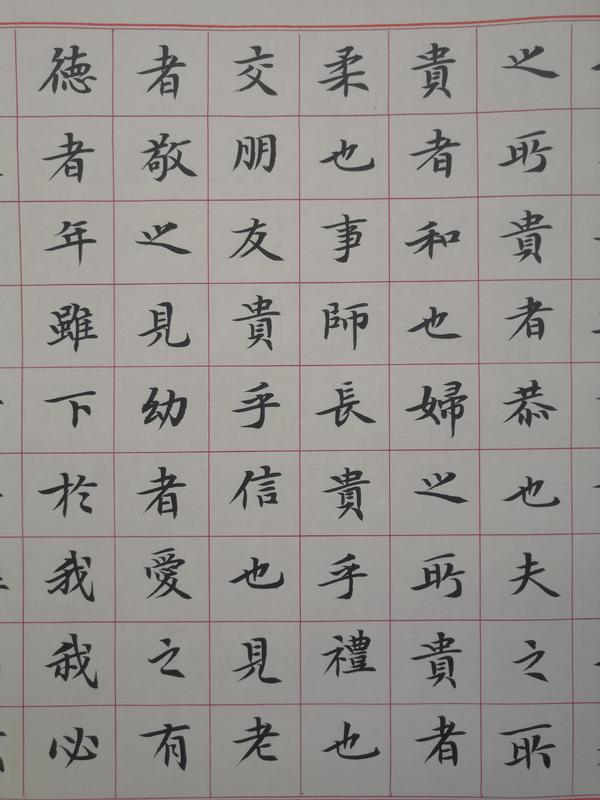 之所貴者恭也夫之所
貴者和也婦之所貴者
柔也事師長貴乎禮也
交朋友貴乎信也見老
者敬之見幼者愛之有
德者年雖下於我我必